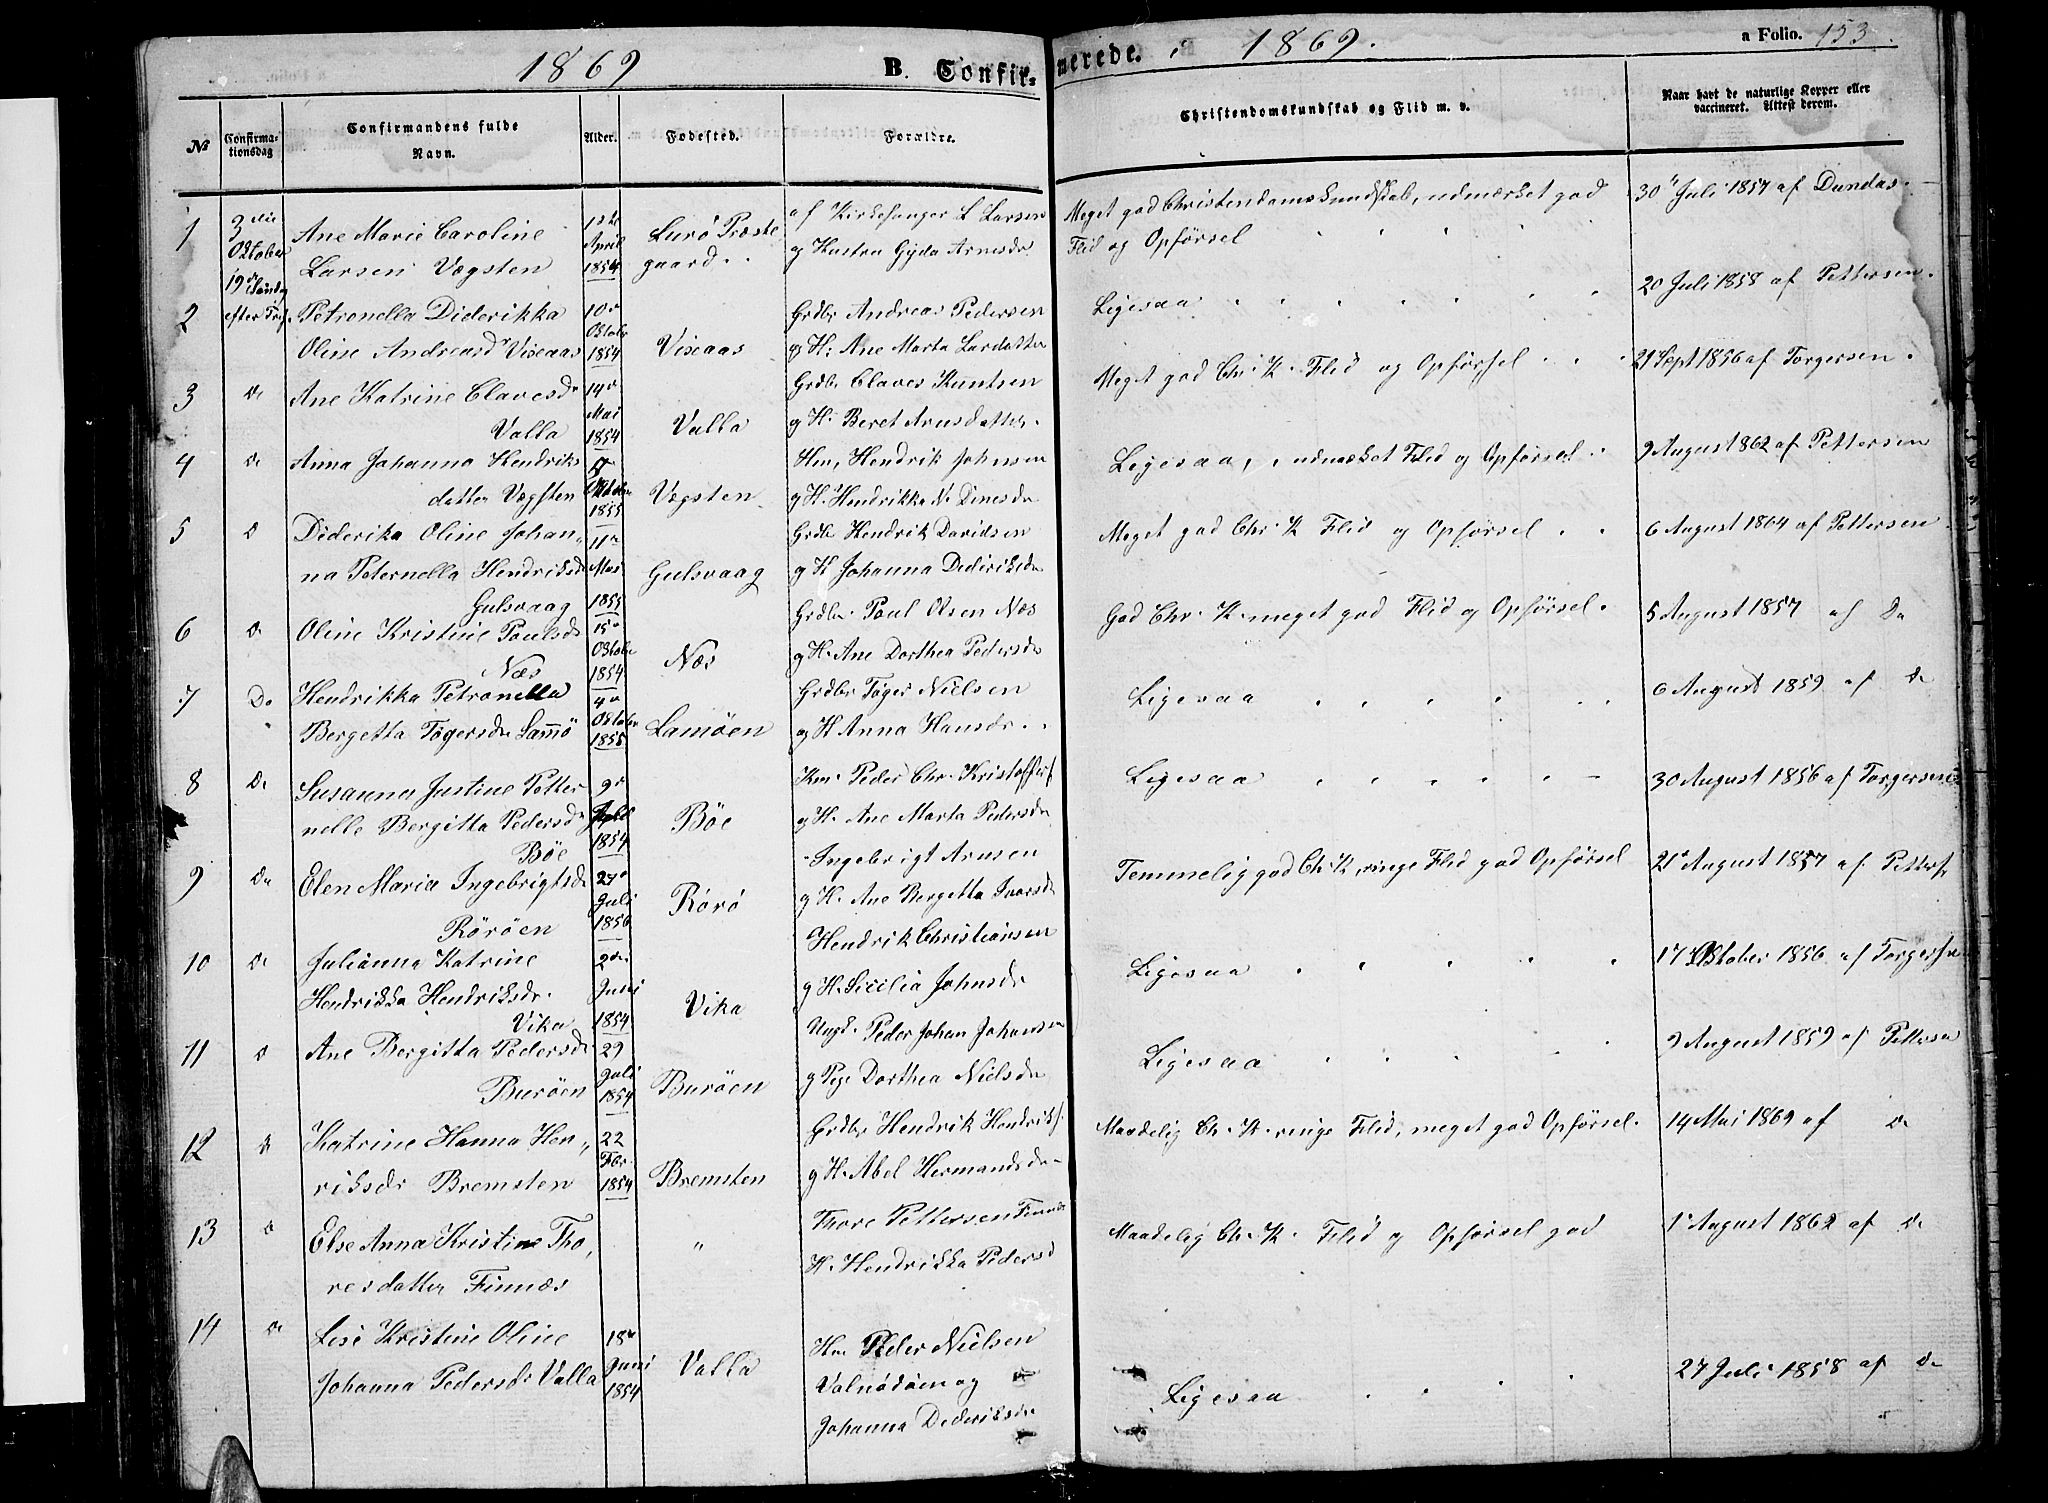 1869 B. Confir-
merede. 1869.
a Folio. 153.
No
Confirma-
tionsdag
Confirmandens fulde
Navn.
Alder.
Fødested.
Forældre.
Christendomskundskab og Flid m. v.
Naar havt de naturlige Kopper eller
vaccineret. Attest derom.
1 3die Ane Marie Caroline 1ste Lurö Præste af Kirkesanger L Larsen Meget god Christendomskundskab, udmærket god 30 Juli 1857 af Dundas.
Oktober Larsen Vægsten April gaard og Hustru Gyda Arnesdr Flid og Opförsel
19de Søndg 1854
2 efter Tref. Petronella Diderikka 10de Grdbr Andreas Pedersen Ligesaa 20 Juli 1858 af Pettersen.
Oline Andreasd Viseaas Oktobr Viseaas og H: Ane Marta Larsdatter
1854
3 Do Ane Katrine Clavesdr 14de Grdbr Claves Knutsen Meget god Chr. K. Flid og Opförsel 21 Sept 1856 af Torgersen.
Valla Mai Valla g H: Beret Arnsdatter.
1854
4 Do Anna Johanna Hendriks Hm, Hendrik Johnsen Ligesaa, udmærket Flid og Opförsel 9 August 1862 af Pettersen
datter Vægsten Oktober Vægsten g H. Hendrikka N. Dinesdr
1855
5 Do Diderika Oline Johan- 11te Grdbr Hendrik Davidsen Meget god Chr K Flid og Opförsel 6 August 1864 af Pettersen
na Peternella Hendriksdr Mai Gulsvaag g H Johanna Dideriksdr
Gulsvaag 1855
6 Do Oline Kristine Paulsdr 15de Grdbr. Paul Olsen Næs God Chr. K. meget god Flid og Opförsel. 5 August 1857 af Do
Næs Oktobr Næs g H. Ane Dorthea Pedersdr
1854
7 Do Hendrikka Petronella 4de Grdbr Töger Nielsen Ligesaa 6 August 1859 af Do
Bergetta Tögersdr Lammö Oktobr Lamöen og H Anna Hansdr
1855
8 Do Susanna Justine Petter 9de Km. Peder Chr. Kristoffers Ligesaa 30 August 1856 af Torgersen
nelle Bergitta Pedersdr Böe g H. Ane Marta Pedersdr
Böe 1854
9 Do Elen Maria Ingebrigtsdr 27de Ingebrigt Arnsen Temmelig god Ch. K, ringe Flid god Opförsel 21 August 1857 af Petters
Röröen Juli Rörö g H. Ane Bergetta Ivarsdr
1856
10 Do Julianna Katrine 2den Hendrik Christiansen Ligesaa 17 Oktober 1856 af Torgersen
Hendrikka Hendriksdr. Juni Vika g H. Sicilia Johnsdr
Vika 1854
11 Do Ane Bergitta Pedersdr 29 Ungk. Peder Johan Johansen Ligesaa 9 August 1859 af Pettersen
Buröen Juli Buröen g Pige Dorthea Nielsdr
1854
12 Do Katrine Hanna Hen- 22 Grdbr Hendrik Hendriks Maadelig Ch. K. ringe Flid, meget god Opförsel. 14 Mai 1869 af Do
riksdr Bremsten Febr Bremsten g H. Abel Hermandsdr
1854
13 Do Else Anna Kristine Tho- " Thore Pettersen Finnæs Maadelig Ch. K. Flid og Opförsel god 1 August 1862 af Do
resdatter Finnæs H. Hendrikka Pedersd
14 Do Lise Kristine Oline 18de Hm Peder Nielsen Ligesaa 27 Juli 1858 af Do
Johanna Pedersdr Valla Juni Valla
1854 Johanna Dideriksdr